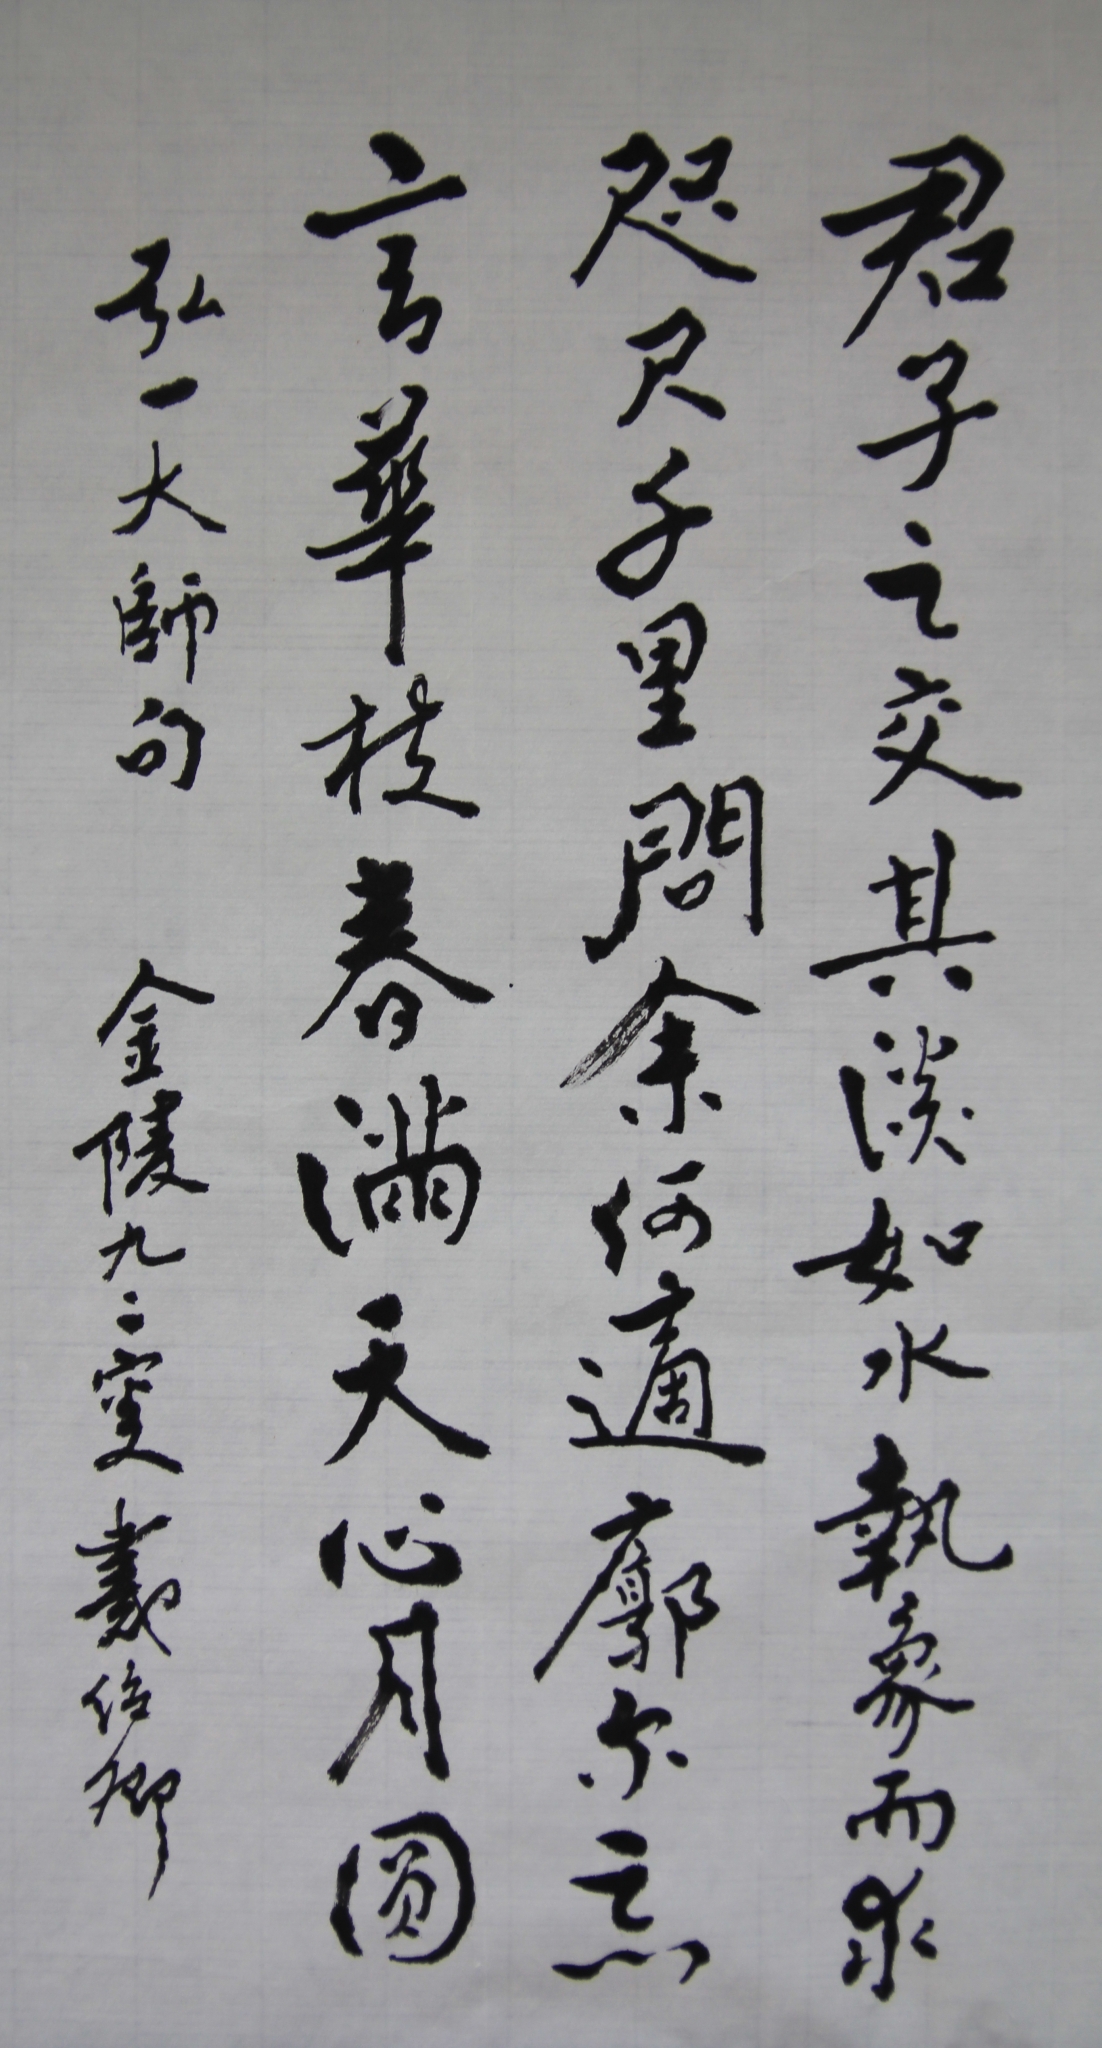 君子之交其淡如水執象而求
咫尺千里問余何適廓尔忘
言華枝春滿天心月圓
弘一大師句 金陵九二叟